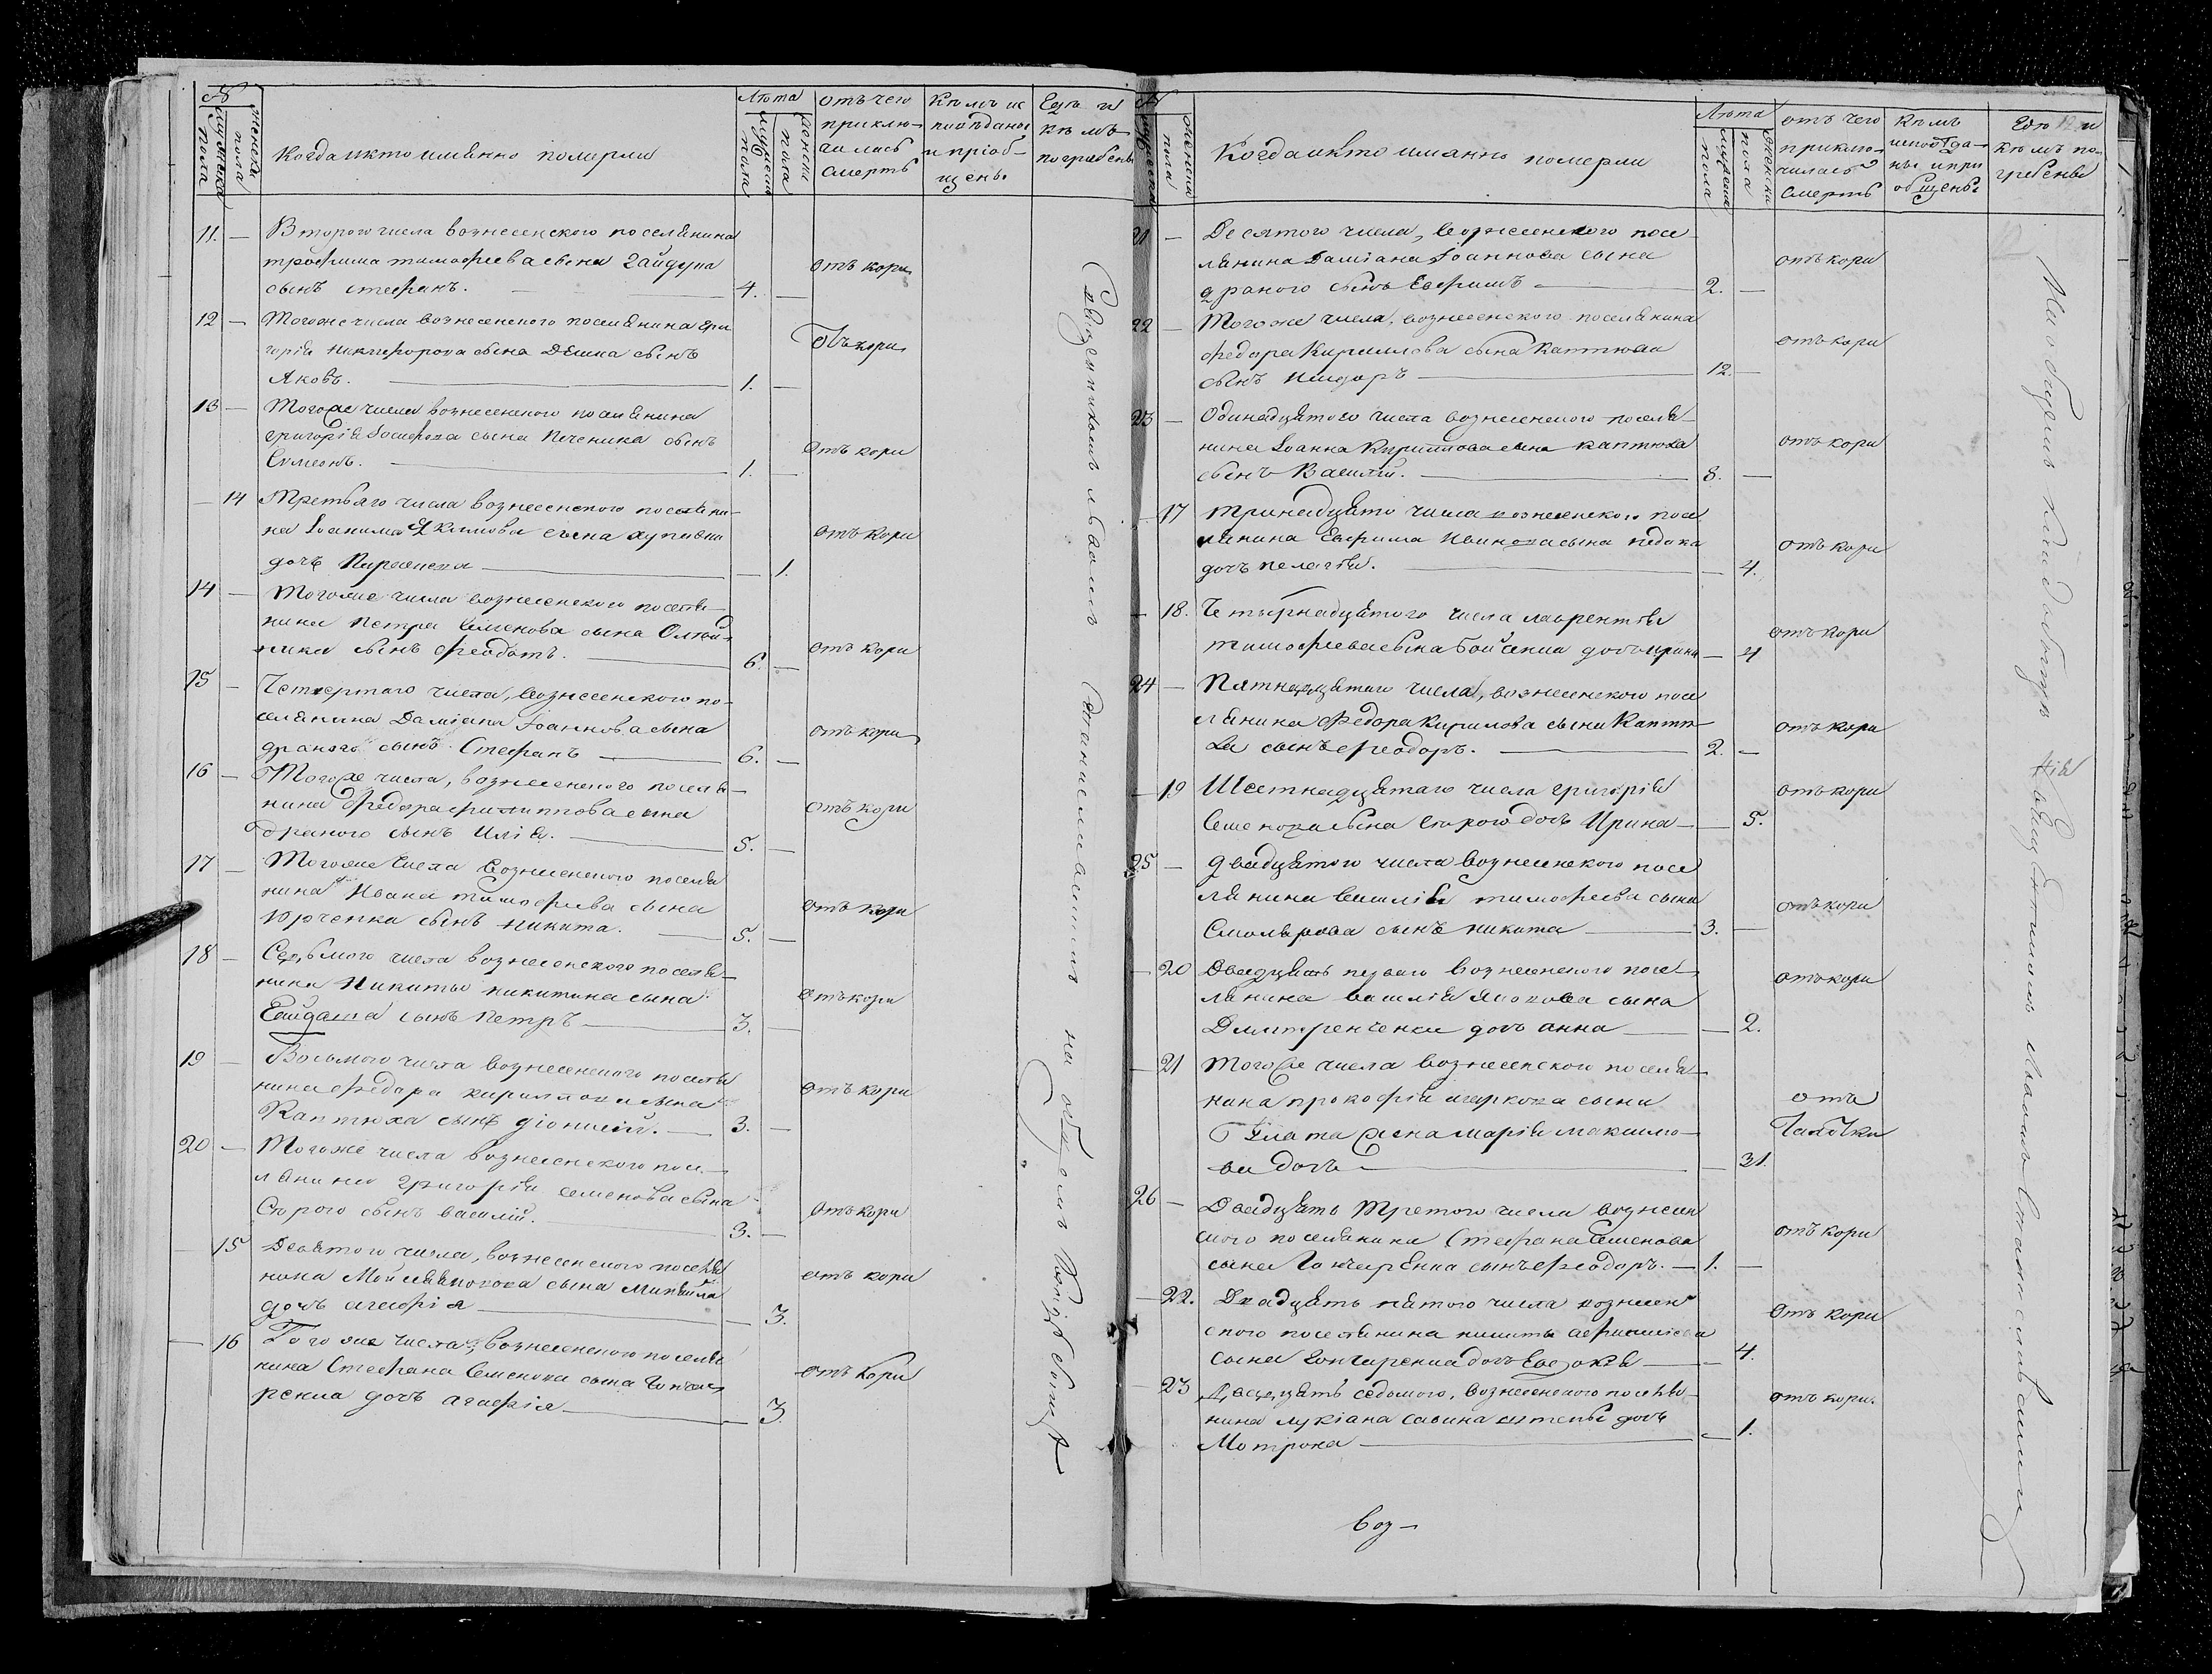 №
мужеска пола
женска пола
Когда и кто имянно померли
Лѣта
мужеска пола
женска пола
отъ чего приклю-
чилась
смерть
Кѣмъ ис
повѣданы
и пріоб-
щены
Где и
кѣмъ
погребены
11. — Второго числа вознесенского поселянина
трофима тимофеева сына Гайдука
сынъ стефанъ. — 4. — отъ кори
12 — Тогоже числа вознесенского поселянина Гри
горія Никифорова сына сынъ
Яковъ. — 1. — отъ кори
13 — Тогоже числа вознесенского поселянина
григорія Іосифова сына Печеника сынъ
Симеонъ. — 1. — отъ кори
— 14 Третьяго числа вознесенского поселяни-
на Іоакима Якимова сына
дочъ Параскева — 1. отъ кори
14 — Тогоже числа вознесенского поселя-
нина Петра Семенова сына Олѣй-
ника сынъ Феодотъ. — 6. — отъ кори
15 — Четвертаго числа, вознесенского по-
селянина Даміана Іоаннова сына
драного сынъ Стефанъ — 6. — отъ кори
16 — Тогоже числа, вознесенского поселя-
нина Федора филиппова сына
драного сынъ Илія. — 5. — отъ кори
17 — Тогоже числа вознесенского поселя
нина Ивана тимофеева сына
Юрченка сынъ никита. — 5. — отъ кори
18 — Седьмого числа вознесенского поселя-
нина Никиты никитина сына
Гайдаша сынъ Петръ — 3. — отъ кори
19 — Восьмого числа вознесенского поселя
нина Федора кириллова сына
Каптюха сынъ діонисій. — 3. — отъ кори
20 — Тогоже числа вознесенского посе-
лянина Григорія семенова сына
Старого сынъ василій. — 3. — отъ кори
— 15 Девятого числа, вознесенского поселя
нина Мойсея сына
дочъ агафія — 3. отъ кори
— 16 Того же числа, вознесенского поселя
нина Стефана Семенова сына Гонча
ренка дочъ агафія — 3. отъ кори
Священникомъ львомъ Станиславскимъ на общемъ кладбищѣ
№
мужеска пола
женска пола
Когда и кто имянно померли
Лѣта
мужеска пола
женска пола
отъ чего
приклю-
чилась
смерть
Кѣмъ
исповѣда-
ны и при
общены
Где и
кѣмъ по-
гребены
21 — Десятого числа, вознесенского посе-
лянина Даміана Іоаннова сына
драного сынъ Евфимъ — 2. — отъ кори
22 — Тогоже числа, вознесенского поселянина
федора Кириллова сына Каптюха
сынъ Исидоръ — 12. — отъ кори
23 — Одинадцятого числа вознесенского поселя-
нина Іоанна Кириллова сына каптюха
сынъ Василій. — 8. — отъ кори
— 17 тринадцято числа вознесенского посе
лянина Евфима Иванова сына
дочъ пелагія. — 4. отъ кори
— 18. Четырнадцятого числа лаврентія
тимофеева сына бойченка дочъ ирина — 4 отъ кори
24 — Пятнадцятаго числа, вознесенского посе
лянина Федора Кирилова сына Каптю-
ха сынъ феодоръ. — 2. — отъ кори
— 19 Шестнадцятаго числа григорія
Семенова сына Старого дочъ Ирина — 5. отъ кори
25 — двадцятого числа вознесенского посе
лянина василія тимофеева сына
Смолярова сынъ никита — 3. — отъ кори
— 20 Двадцять первого вознесенского посе-
лянина василія Яковова сына
Дмитренченка дочъ анна — 2. отъ кори
— 21 Тогоже числа вознесенского поселя-
нина прокофія маркова сына
жена марія максимо-
ва дочъ — 31. отъ
чахотки
26 — Двадцять третого числа вознесен
ского поселянина Стефана Семенова
сына Гончаренка сынъ феодоръ. — 1. — отъ кори
— 22. Двадцять пятого числа вознесен
ского поселянина никиты
сына Гончаренка дочъ Евдокія — 4. отъ кори
— 23 Двадцять седьмого, вознесенского поселя-
нина лукіана савина дочъ
Мотрона — 1. отъ кори
На общемъ кладбищѣ священникомъ львомъ Станиславскимъ
воз-